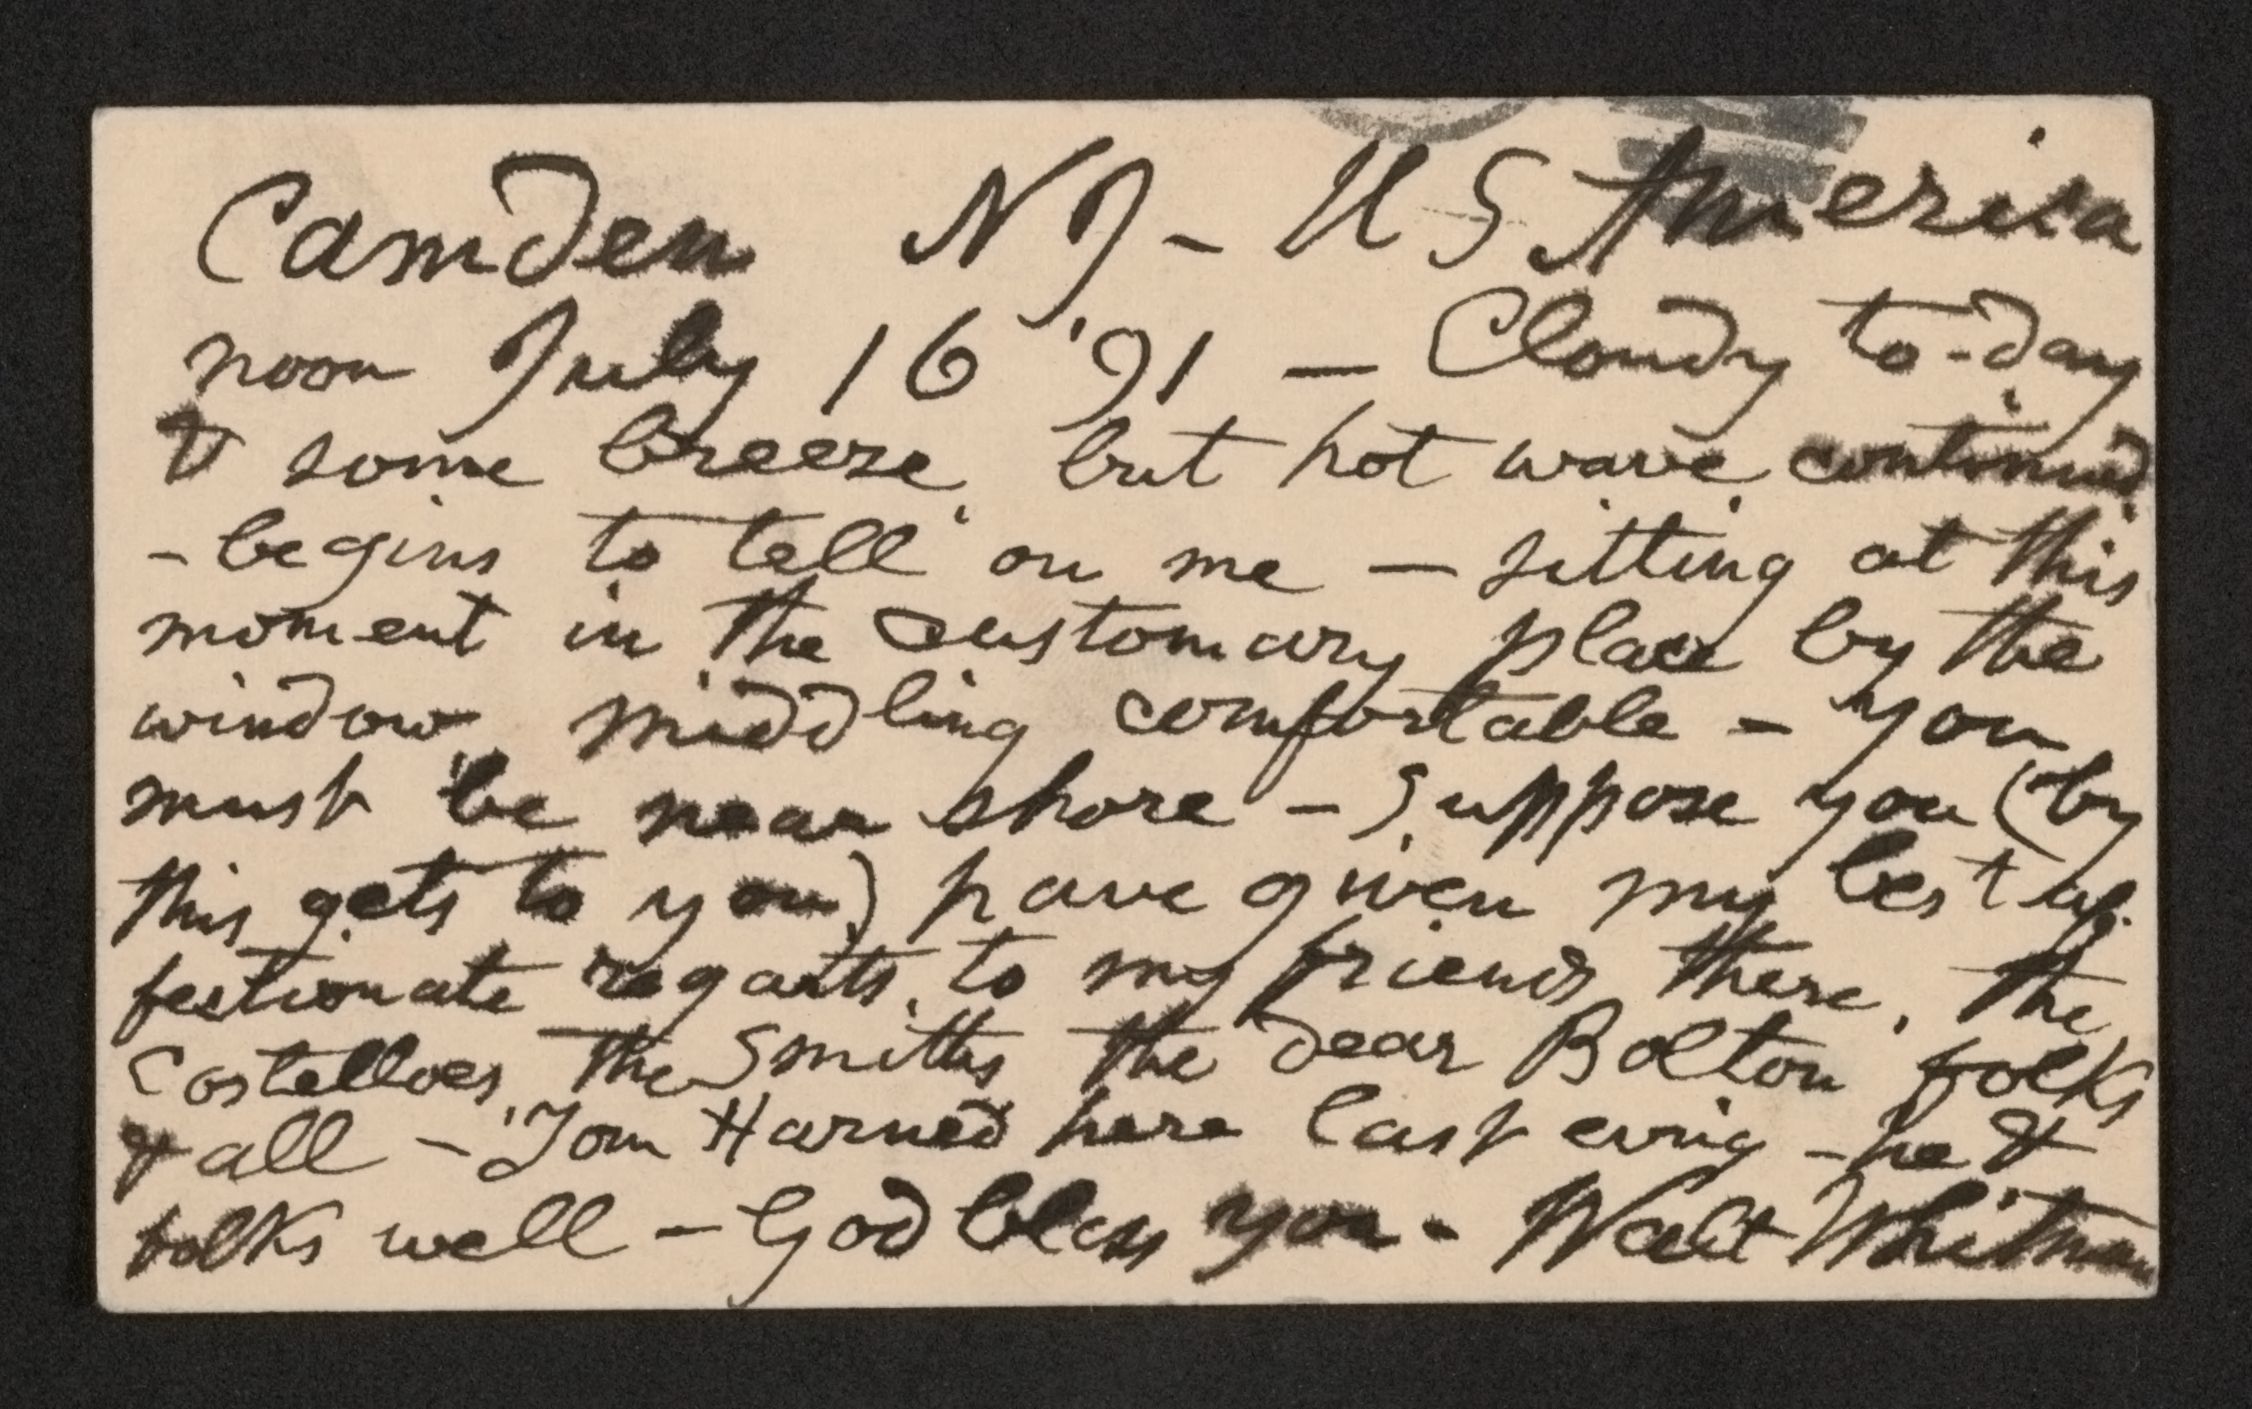 Camden NJ - U S America
noon July 16 '91 — Cloudy to-day
& some breeze, but hot wave continued
- begins to tell on me — sitting at this
moment in the customary place by the
window middling comfortable - You
must be near shore - Suppose you (by
this gets to you) have given my best af-
fectionate regards to my friends there, the
Costelloes, the Smiths the dear Bolton folks
& all - Tom Harned here last evn'g - he &
folks well - God bless you - Walt Whitman